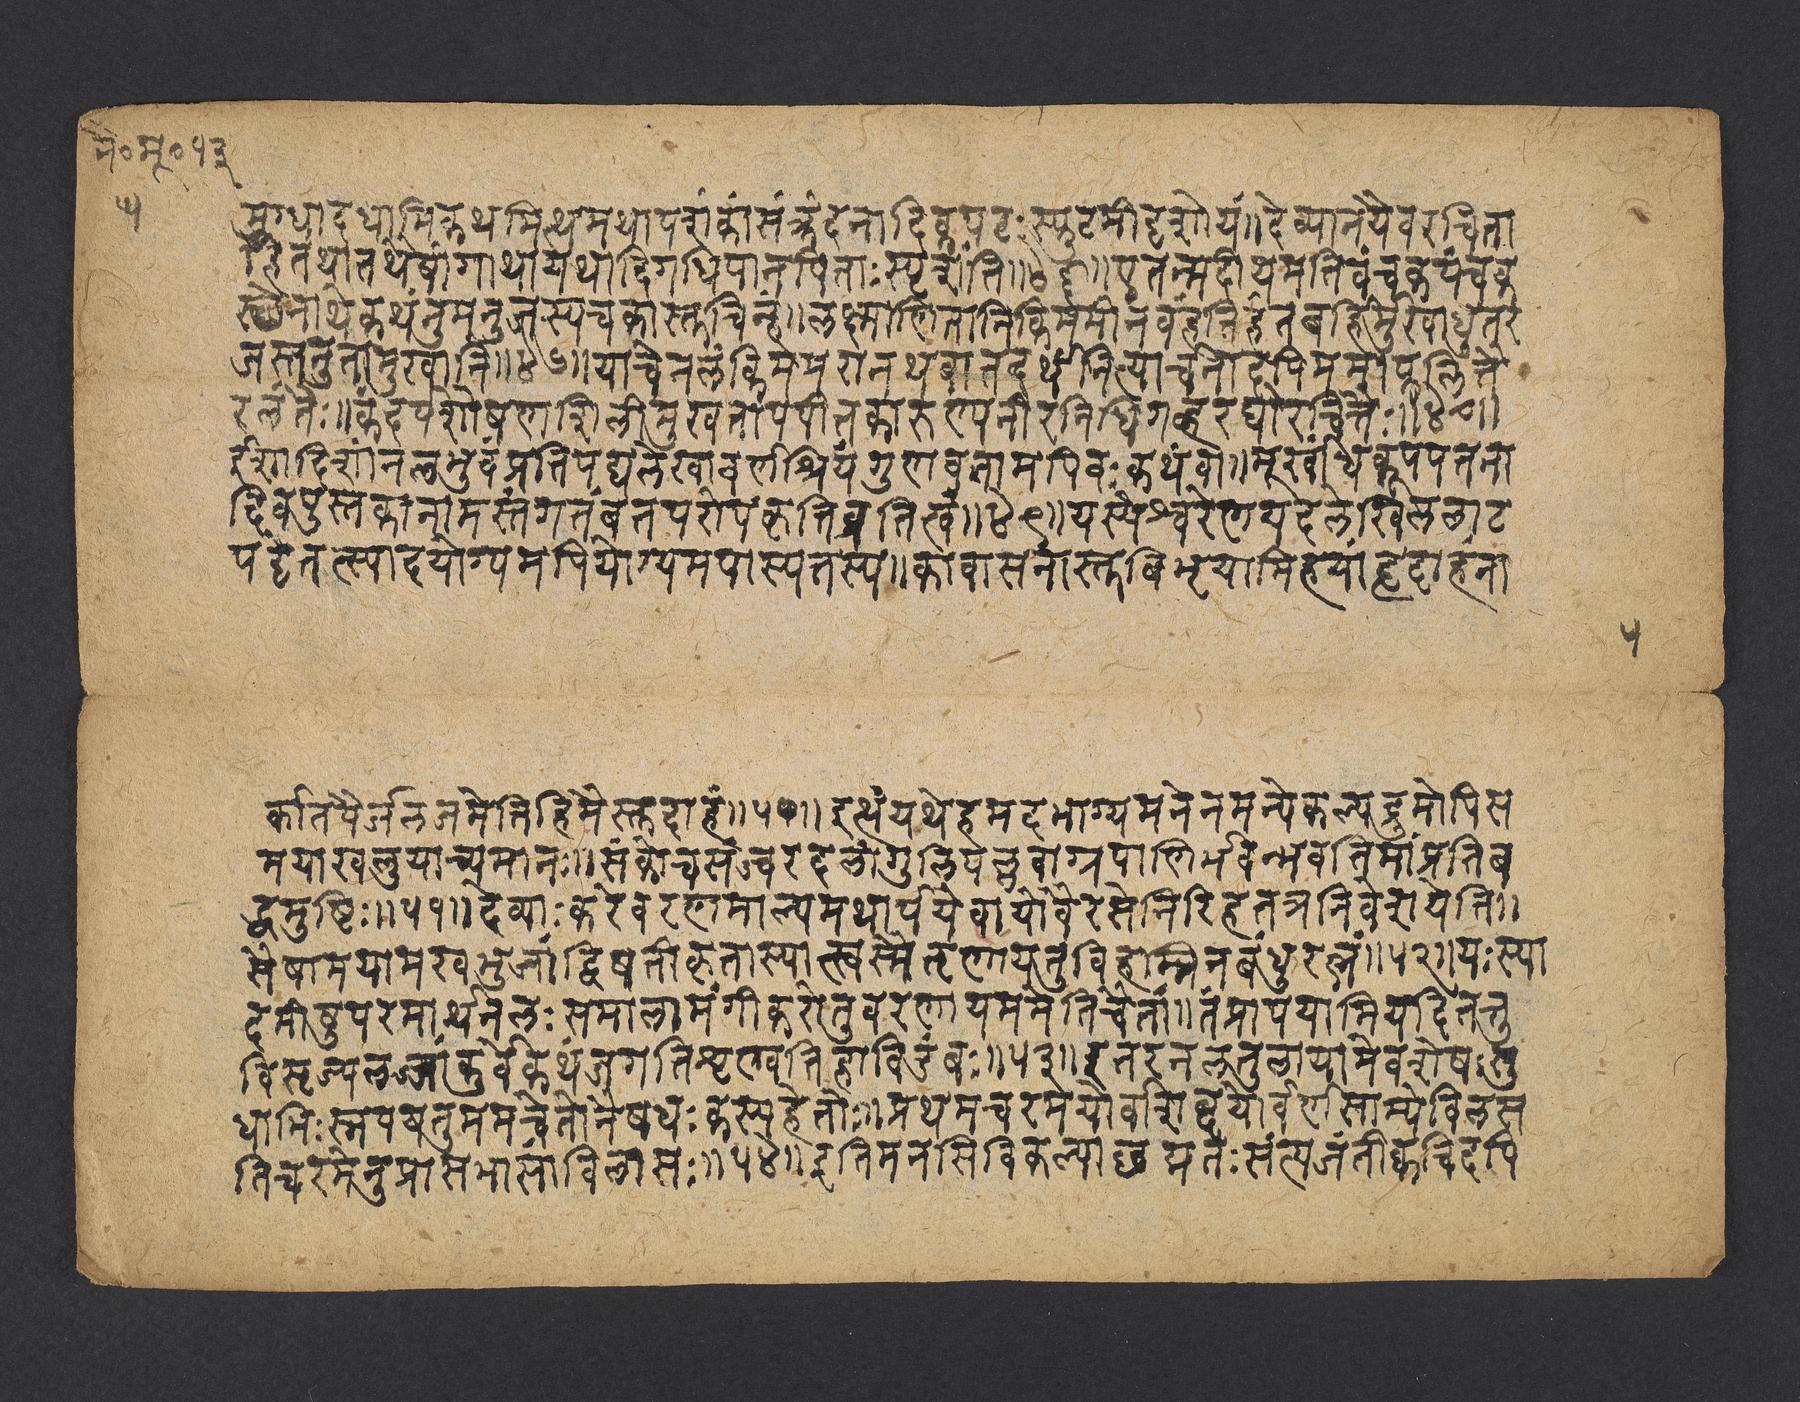 नै॰ मू॰ १३
५
मुग्धादधामिकथमित्थमथापशंकांसंक्रंदनादिकपटःस्फुटमीदृशोयं॥देव्यानयैवरचिता
हितथातथैषांगाथायथादिगधिपानपिताःस्पृशंति॥४६॥एतन्मदीयमतिवंचकपंचक
स्थेनाथेकथंनुमनुजस्यचकास्तुचिन्हं॥लक्ष्माणितानिकिममीनवहंतिहंतबर्हिर्मुखाधुतर
जस्तनुतामुखानि॥४७॥याचेनलंकिममरानथवातदर्थंनित्यार्चनादपिममाफलिनै
रलंतैः॥कंदर्पशोषणशिलीमुखपातपीतकारुण्यनीरनिधिगह्वरघोरचित्तैः॥४८॥
ईशादिशांनलभुवंप्रतिपद्यलेखावर्णश्रियंगुणवतामपिवःकथंवा॥मूर्खांधकूपपतना
दिवपुस्तकानामस्तंगतंबतपरोपकृतिव्रतित्वं॥४९॥यस्येश्वरेणयदलेखिललाट
पट्टेतत्स्यादयोग्यमपियोग्यमपास्यतस्य॥कावासनास्तुबिभृयामिहयांहृदाहंना
५
र्कातपैर्जलजमेतिहिमैस्तुदाहं॥५०॥इत्थंयथेहमदभाग्यमनेनमन्येकल्पद्रुमोपिस
मयाखलुयाच्यमानः॥संकोचसंज्वरदलांगुलिपल्लवाग्रपाणिर्भवन्भवतिमांप्रतिब
द्धमुष्टिः॥५१॥देव्याःकरेवरणमाल्यमथार्पयेवायोवैरसेनिरिहतत्रनिवेशयेति॥
सैषामयामखभुजांद्विषतीकृतास्यात्स्वस्मैतृणायतुविहन्मिनबंधुरत्नं॥५२॥यःस्या
दमीषुपरमार्थनलःसमालामंगीकरोतुवरणायममेतिचेतां॥तंप्रापयामियदितत्तु
विसृज्यलज्जांकुर्वेकथंजगतिशृण्वतिहाविडंबः॥५३॥इतरनलतुलायामेवशेषःसु
धाभिःस्नपयतुममचेतोनैषधःकस्यहेतोः॥प्रथमचरमयोर्वाशब्दयोर्वर्णसाम्येविलस
तिचरमेनुप्रासभासांविलासः॥५४॥इतिमनसिविकल्पान्प्रतःसंत्यजंतीक्वचिदपि